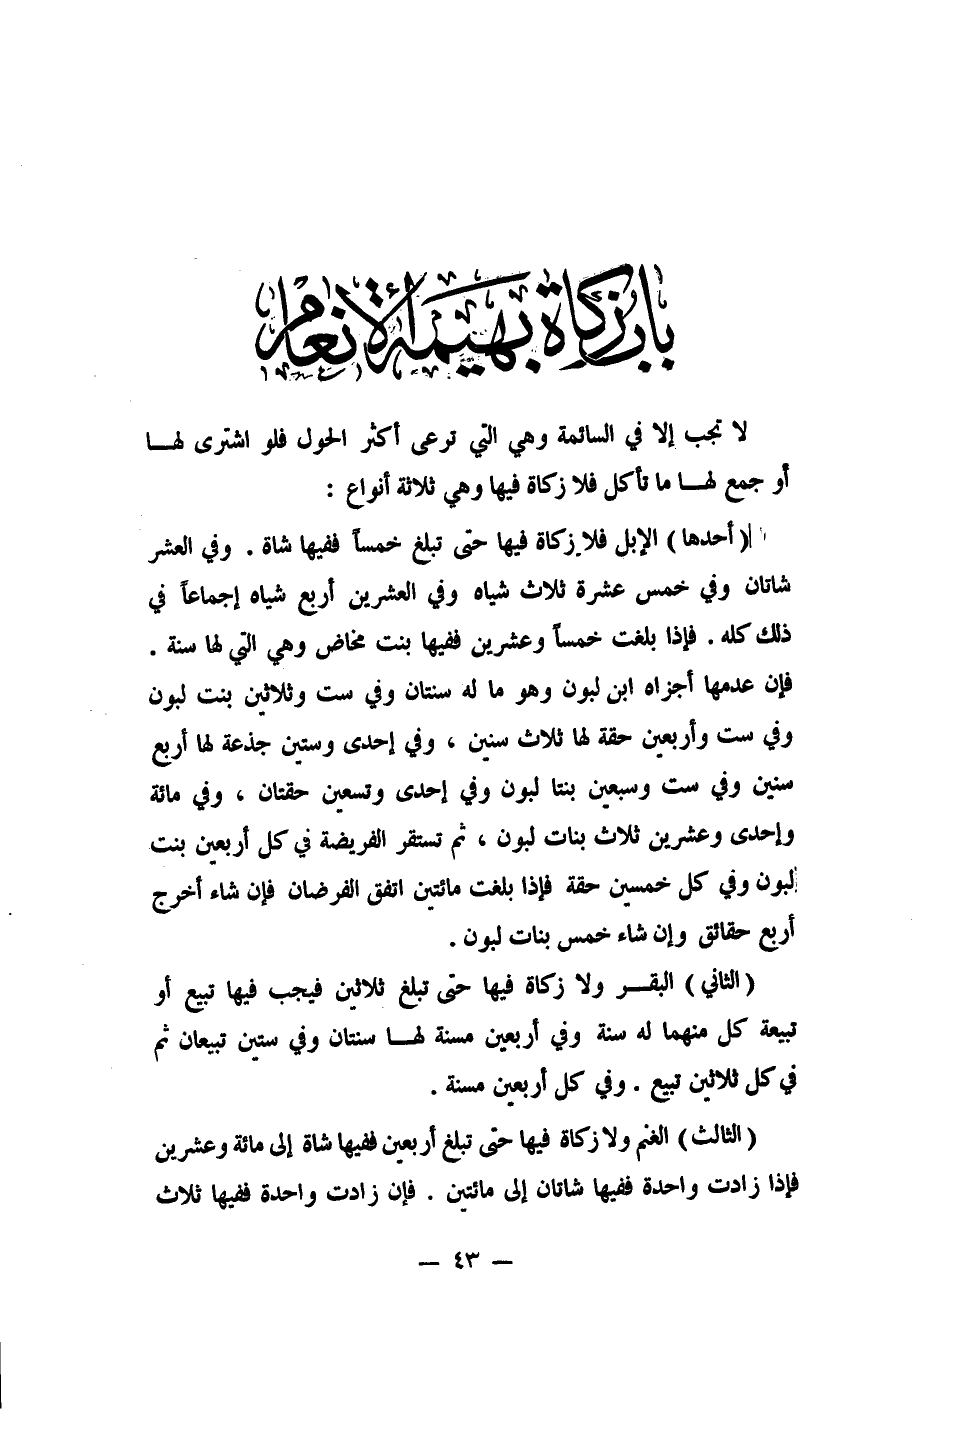 باب زكاة بهيمة الأنعام
لا تجب إلا في السائمة وهي التي ترعى أكثر الحول فلو اشترى لهـــا
أو جمع لهـــا ما تأكل فلا زكاة فيها وهي ثلاثة أنواع :
( أحدها ) الإبل فلا زكاة فيها حتى تبلغ خمساً ففيها شاة . وفي العشر
شاتان وفي خمس عشرة ثلاث شياه وفي العشرين أربع شياه إجماعاً في
ذلك كله . فإذا بلغت خمساً وعشرين ففيها بنت مخاض وهي التي لها سنة .
فإن عدمها أجزاه ابن لبون وهو ما له سنتان وفي ست وثلاثين بنت لبون
وفي ست وأربعين حقة لها ثلاث سنين ، وفي إحدى وستين جذعة لها أربع
سنين وفي ست وسبعين بنتا لبون وفي إحدى وتسعين حقتان ، وفي مائة
وإحدى وعشرين ثلاث بنات لبون ، ثم تستقر الفريضة في كل أربعين بنت
لبون وفي كل خمسين حقة فإذا بلغت مائتين اتفق الفرضان فإن شاء أخرج
أربع حقائق وإن شاء خمس بنات لبون .
( الثاني ) البقـــر ولا زكاة فيها حتى تبلغ ثلاثين فيجب فيها تبيع أو
تبيعة كل منهما له سنة وفي أربعين مسنة لهـــا سنتان وفي ستين تبيعان ثم
في كل ثلاثين تبيع . وفي كل أربعين مسنة .
( الثالث ) الغنم ولا زكاة فيها حتى تبلغ أربعين ففيها شاة إلى مائة وعشرين
فإذا زادت واحدة ففيها شاتان إلى مائتين . فإن زادت واحدة ففيها ثلاث
— ٤٣ —